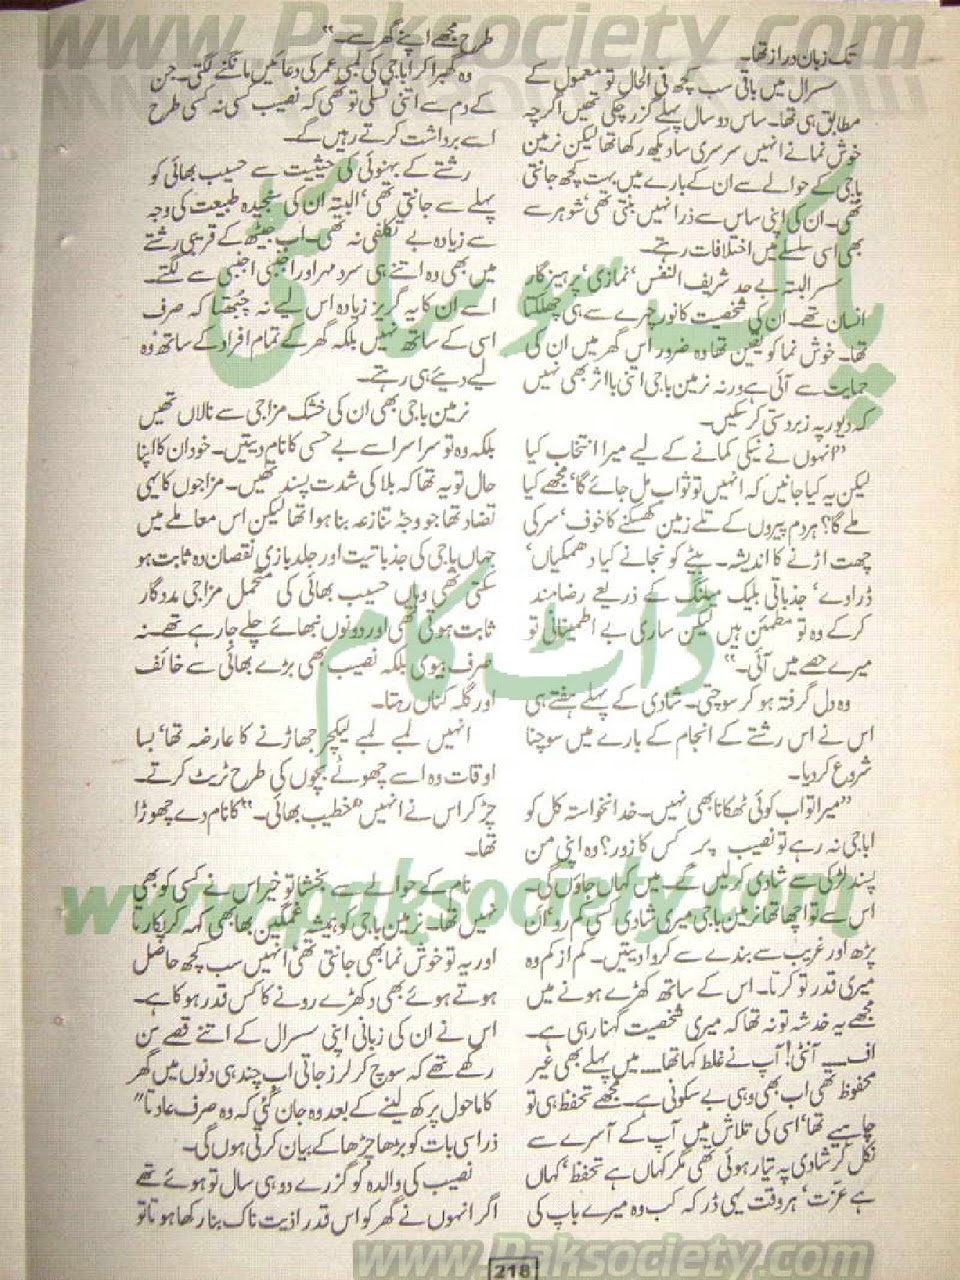 www.Paksociety.com
تک زبان دراز تھا۔
سسرال میں باقی سب کچھ فی الحال تو معمول کے
مطابق ہی تھا۔ ساس دو سال پہلے گزر چکی تھیں اگرچہ
خوش نما نے انہیں سرسری سا دیکھ رکھا تھا لیکن نرمین
باجی کے حوالے سے ان کے بارے میں بہت کچھ جانتی
تھی۔ ان کی اپنی ساس سے ذرا نہیں بنتی تھی شوہر سے
بھی اسی سلسلے میں اختلافات رہتے۔
سسر البتہ بے حد شریف النفس، نمازی، پرہیزگار
انسان تھے۔ ان کی شخصیت کا نور چہرے سے ہی چھلکتا
تھا۔ خوش نما کو یقین تھا وہ ضرور اس گھر میں ان کی
حمایت سے آئی ہے ورنہ نرمین باجی اتنی بااثر بھی نہیں
کہ دیور پہ زبردستی کر سکیں۔
”انہوں نے نیکی کمانے کے لیے میرا انتخاب کیا
لیکن یہ کیا جانیں کہ انہیں تو ثواب مل جائے گا، مجھے کیا
ملے گا؟ ہر دم پیروں کے تلے زمین کھسکنے کا خوف، سر کی
چھت اڑنے کا اندیشہ۔ بیٹے کو نجانے کیا دھمکیاں،
ڈراوے، جذباتی بلیک میلنگ کے ذریعے رضامند
کر کے وہ تو مطمئن ہیں لیکن ساری بے اطمینانی تو
میرے حصے میں آئی۔“
وہ دل گرفتہ ہو کر سوچتی۔ شادی کے پہلے ہفتے ہی
اس نے اس رشتے کے انجام کے بارے میں سوچنا
شروع کر دیا۔
”میرا تو اب کوئی ٹھکانا بھی نہیں۔ خدانخواستہ کل کو
اباجی نہ رہے تو نصیب پر کس کا زور؟ وہ اپنی من
پسند لڑکی سے شادی کر لیں گے۔ میں کہاں جاؤں گی۔
اس سے تو اچھا تھا نرمین باجی میری شادی کسی کم رو، ان
پڑھ اور غریب سے بندے سے کروا دیتیں۔ کم از کم وہ
میری قدر تو کرتا۔ اس کے ساتھ کھڑے ہونے میں
مجھے یہ خدشہ تو نہ تھا کہ میری شخصیت گہنا رہی ہے۔
اف۔۔۔ آنٹی! آپ نے غلط کہا تھا۔۔۔ میں پہلے بھی غیر
محفوظ تھی اب بھی وہی بے سکونی ہے۔ مجھے تحفظ ہی تو
چاہیے تھا، اسی کی تلاش میں آپ کے آسرے سے
نکل کر شادی پہ تیار ہوئی تھی مگر کہاں ہے تحفظ، کہاں
ہے عزت، ہر وقت یہی ڈر کہ کب وہ میرے باپ کی
طرح مجھے اپنے گھر سے۔“
وہ گھبرا کر اباجی کی لمبی عمر کی دعائیں مانگنے لگتی۔ جن
کے دم سے اتنی تسلی تو تھی کہ نصیب کسی نہ کسی طرح
اسے برداشت کرتے رہیں گے۔
رشتے کے بہنوئی کی حیثیت سے حسیب بھائی کو
پہلے سے جانتی تھی، البتہ ان کی سنجیدہ طبیعت کی وجہ
سے زیادہ بے تکلفی نہ تھی۔ اب جیٹھ کے قریبی رشتے
میں بھی وہ اتنے ہی سرد مہر اور اجنبی اجنبی سے لگتے۔
اسے ان کا یہ گریز زیادہ اس لیے نہ چبھتا کہ صرف
اسی کے ساتھ نہیں بلکہ گھر کے تمام افراد کے ساتھ وہ
لیے دیئے ہی رہتے۔
نرمین باجی بھی ان کی خشک مزاجی سے نالاں تھیں
بلکہ وہ تو سراسر اسے بے حسی کا نام دیتیں۔ خود ان کا اپنا
حال تو یہ تھا کہ بلا کی شدت پسند تھیں۔ مزاجوں کا یہی
تضاد تھا جو وجہ تنازعہ بنا ہوا تھا لیکن اس معاملے میں
جہاں باجی کی جذباتیت اور جلد بازی نقصان دہ ثابت ہو
سکتی تھی وہاں حسیب بھائی کی متحمل مزاجی مددگار
ثابت ہوتی تھی اور دونوں نبھائے چلے جا رہے تھے۔ نہ
صرف بیوی بلکہ نصیب بھی بڑے بھائی سے خائف
اور گلہ کناں رہتا۔
انہیں لمبے لمبے لیکچر جھاڑنے کا عارضہ تھا، بسا
اوقات وہ اسے چھوٹے بچوں کی طرح ٹریٹ کرتے۔
چڑ کر اس نے انہیں ”خطیب بھائی۔“ کا نام دے چھوڑا
تھا۔
نام کے حوالے سے بخشا تو خیر اس نے کسی کو بھی
نہیں تھا۔ نرمین باجی کو ہمیشہ غمگین بھابھی کہہ کر پکارتا
اور یہ تو خوش نما بھی جانتی تھی، انہیں سب کچھ حاصل
ہوتے ہوئے بھی دکھڑے رونے کا کس قدر ہوکا ہے۔
اس نے ان کی زبانی اپنی سسرال کے اتنے قصے سن
رکھے تھے کہ سوچ کر لرز جاتی اب چند ہی دنوں میں گھر
کا ماحول پرکھ لینے کے بعد وہ جان گئی کہ وہ صرف عادتاً
ذرا سی بات کو بڑھا چڑھا کے بیان کرتی ہوں گی۔
نصیب کی والدہ کو گزرے دو ہی سال تو ہوئے تھے
اگر انہوں نے گھر کو اس قدر اذیت ناک بنا رکھا ہوتا تو
پاک سوسائٹی
ڈاٹ کام
www.paksociety.com
www.Paksociety.com
218